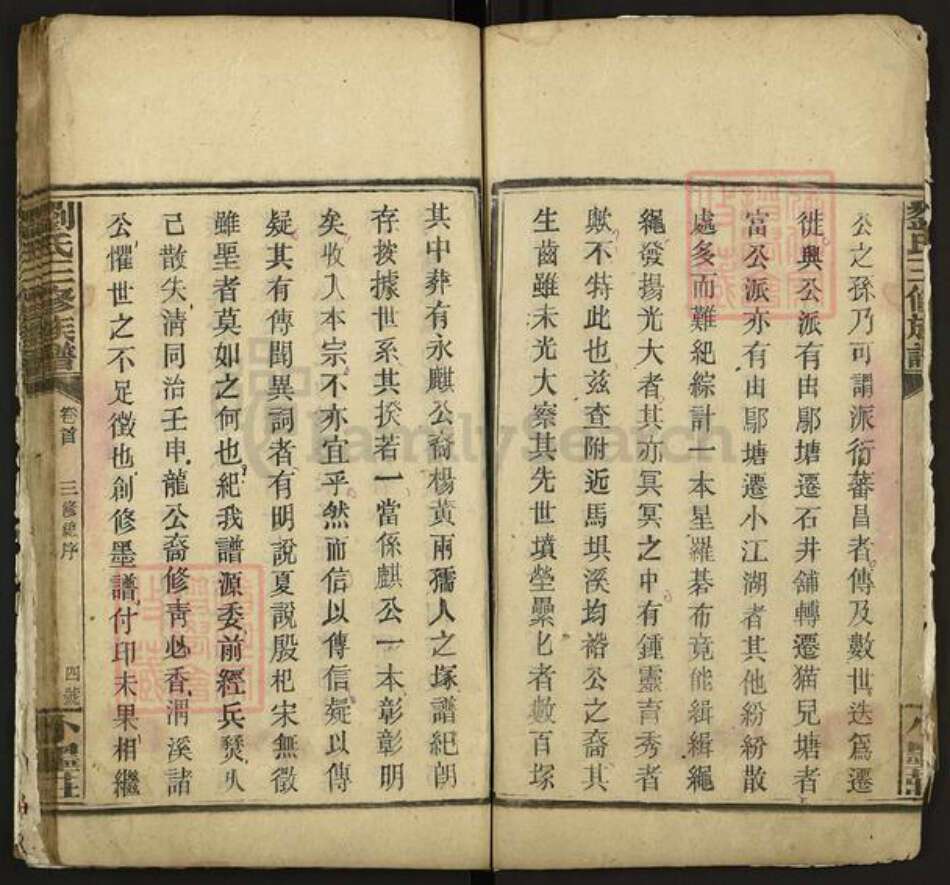 劉氏三修族譜
公之孫乃可謂派衍蕃昌者傳及數世迭爲遷
徙輿公派有由鄔塘遷石井舖轉遷猫兒塘者
富公派亦有由鄔塘遷小江湖者其他紛紛散
處多而難紀綜計一本星羅碁布竟能緝緝繩
繩發揚光大者其亦冥冥之中有鍾靈育秀者
歟不特此也兹查附近馬垻溪均裕公之裔其
生齒雖未光大察其先世墳塋纍匕者數百塚
其中葬有永麒公裔楊黄兩孺人之塚譜紀朗
存按據世系其揆若一當係麒公一本彰彰明
矣收入本宗不亦宜乎然而信以傳信疑以傳
疑其有傳聞異詞者有明說夏說殷杞宋無徵
雖聖者莫如之何也紀我譜源委前經兵燹久
己散失淸同治壬申龍公裔修靑必香渭溪諸
公懼世之不足徵也創修墨譜付印未果相繼
劉氏三修族譜
卷首
三修總序
四號
FamilySearch